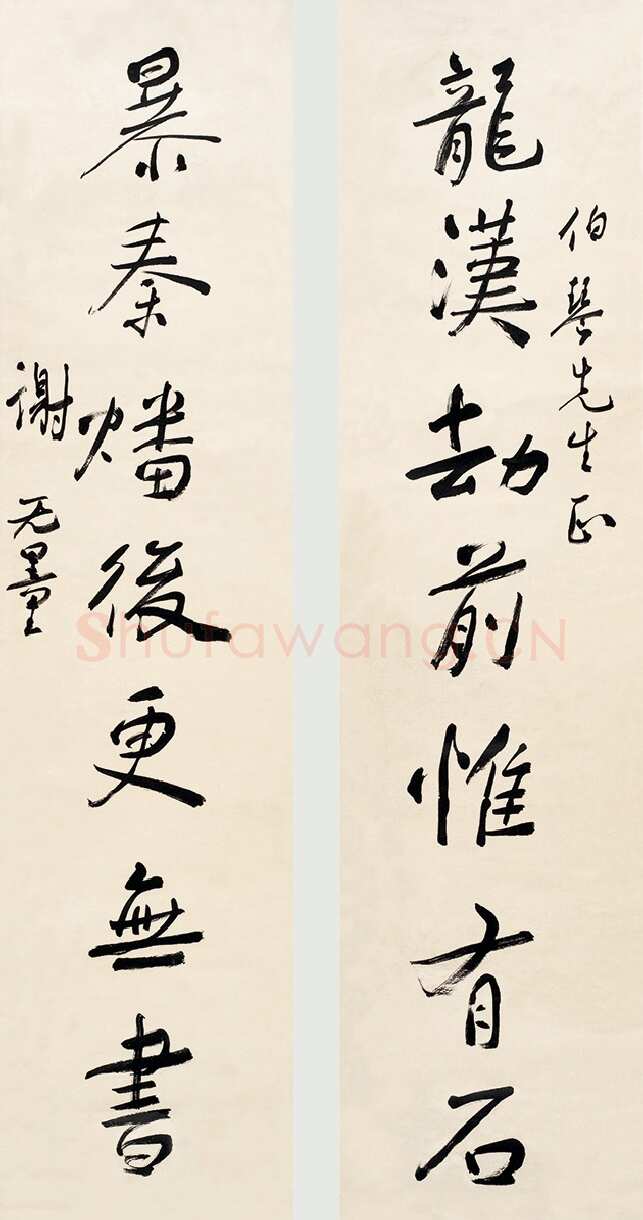 龍漢劫前惟有石
伯琴先生正
暴秦燔後更無書
謝无量
Shufawang.CN